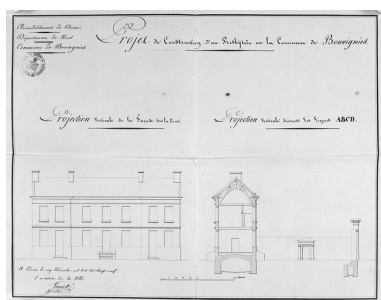 Arrondissement de Douai.
Département du Nord
Commune de Bouvignies.
Projet de Construction d'un Presbytère en la Commune de Bouvignies.
Projection Verticale de la Façade sur la Cour.
Projection Verticale suivant les Lignes ABCD.
A Douai le cinq